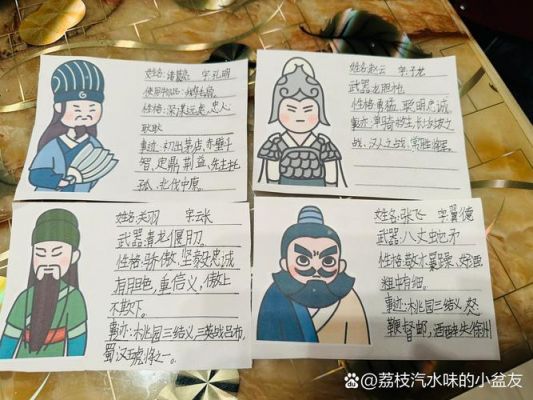 姓名:诸葛亮 字孔明
性格:深谋远虑,忠心
耿耿
事迹:初出茅店,赤壁斗
智,定鼎荆益,先主托
孤,北伐中原。
姓名:赵云 字子龙
武器:龙胆枪
性格:勇猛,聪明忠诚。
事迹:单骑救主,长坂坡之
战,汉人之战,常胜将军。
姓名:关羽 字云长
武器:青龙偃月刀。
性格:骄傲,坚毅忠诚
有胆色,重信义,傲上
不欺下。
事迹:桃园三结义,三英战吕布,
蜀汉五虎将之一。
姓名:张飞 字翼德
武器:八丈蛇矛
性格:敢火暴躁,
粗中有细。
事迹:桃园三结义,怒
鞭督邮,酒醉失徐州
@荔枝汽水味的小盆友